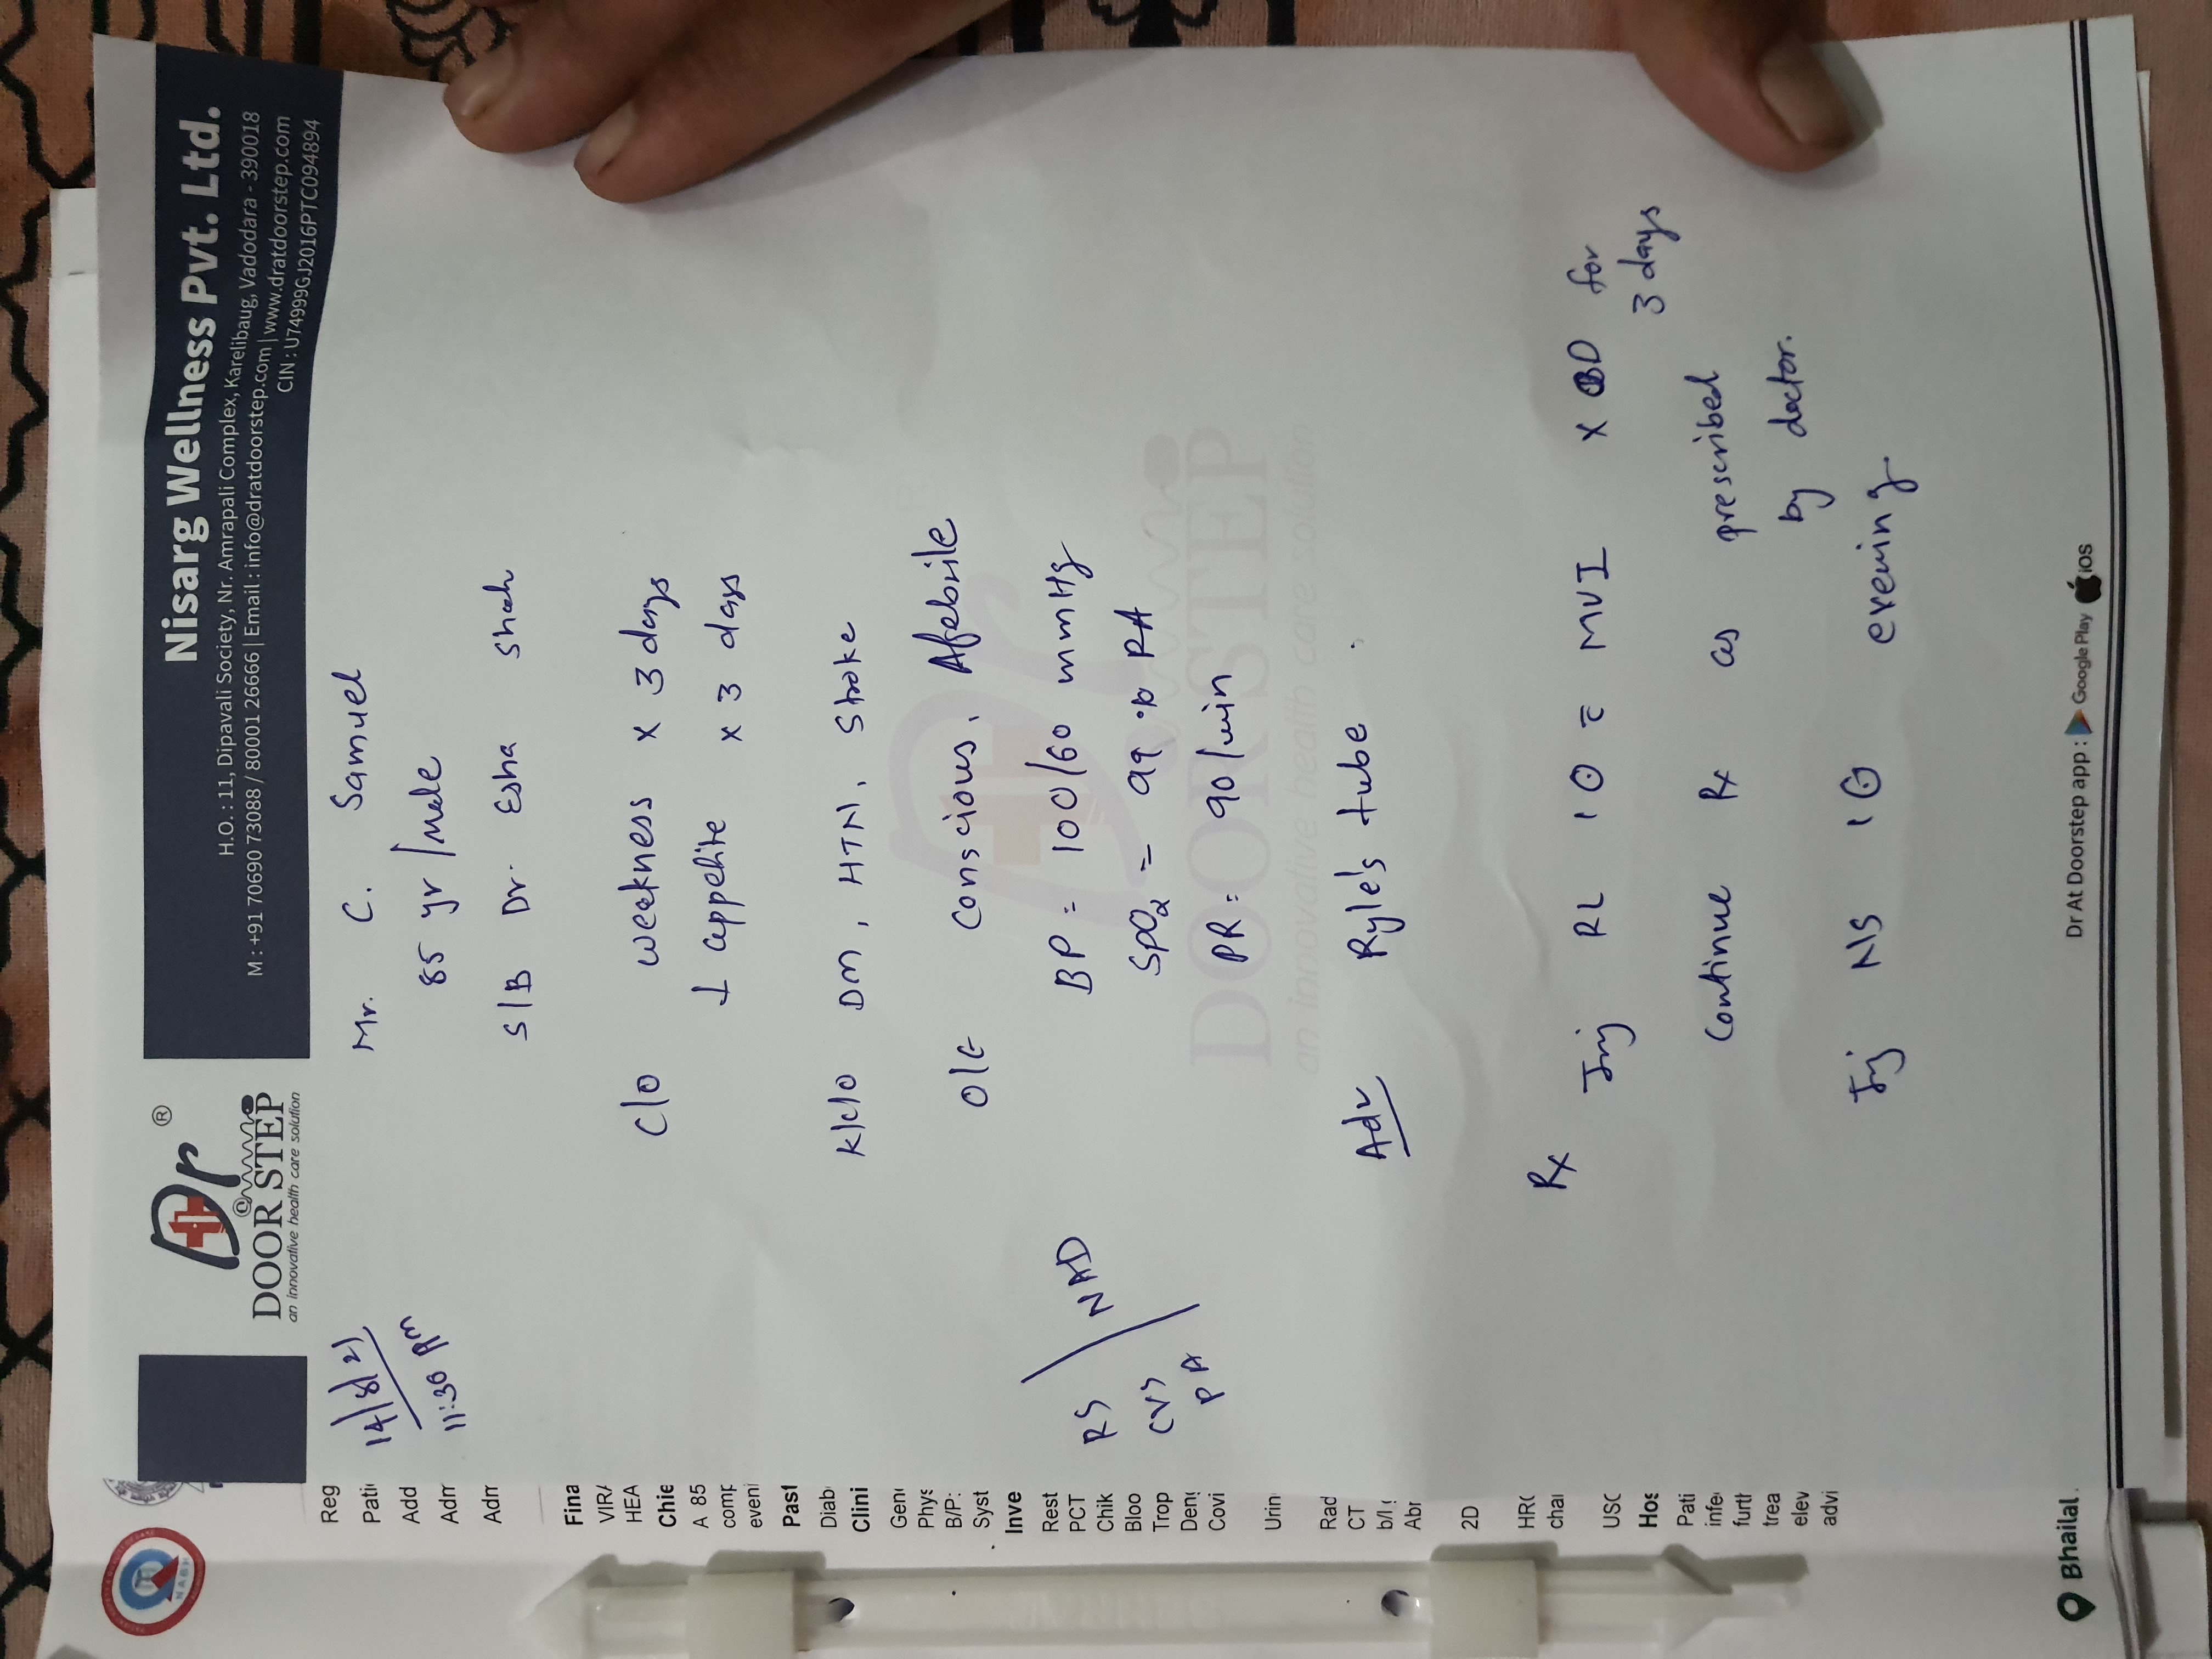 NABH
Dr ®
@
DOOR STEP
an innovative health care solution
Nisarg Wellness Pvt. Ltd.
H.O. : 11, Dipavali Society, Nr. Amrapali Complex, Karelibaug, Vadodara - 390018
M : +91 70690 73088 / 80001 26666 | Email : info@dratdoorstep.com | www.dratdoorstep.com
CIN : U74999GJ2016PTC094894
14/8/21
11:30 pm
Mr. C. Samuel
85 yr /male
S/B Dr. Esha Shah
c/o weakness x 3 days
↓ appetite x 3 days
k/c/o DM, HTN, Stroke
O/E Conscious, Afebrile
BP = 100/60 mmHg
SpO2 = 99 % RA
PR = 90 /min
RS
CVS
PA
NAD
Adv Ryle's tube
Rx
Inj RL 1 MVI x for
3 days
Continue Rx as prescribed
by doctor.
Inj NS 1 evening.
Dr At Doorstep app : Google Play iOS
Reg
Pati
Add
Adm
Adm
Fina
VIRA
HEA
Chie
A 85
comp
eveni
Past
Diab
Clini
Gene
Phys
B/P:
Syst
Inve
Rest
PCT
Chik
Bloo
Trop
Deng
Covi
Urin
Rad
CT
b/l
Abr
2D
HRC
chai
USC
Hos
Pati
infe
furth
trea
elev
advi
Bhailal
Dr
DOOR STEP
an innovative health care solution